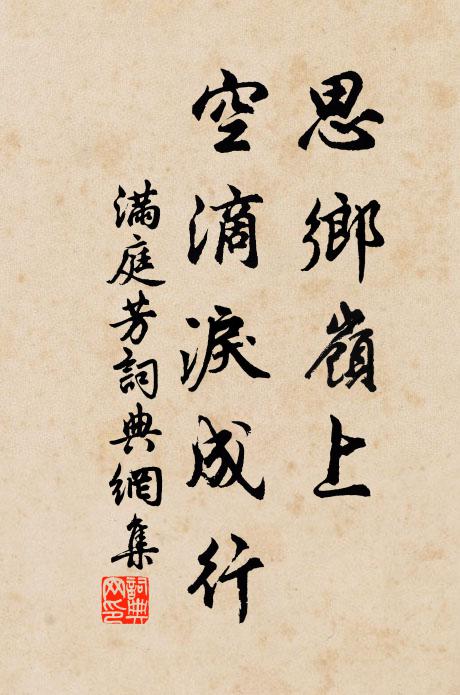 思鄉嶺上
空滴淚成行
滿庭芳詞典網集
詞典網印